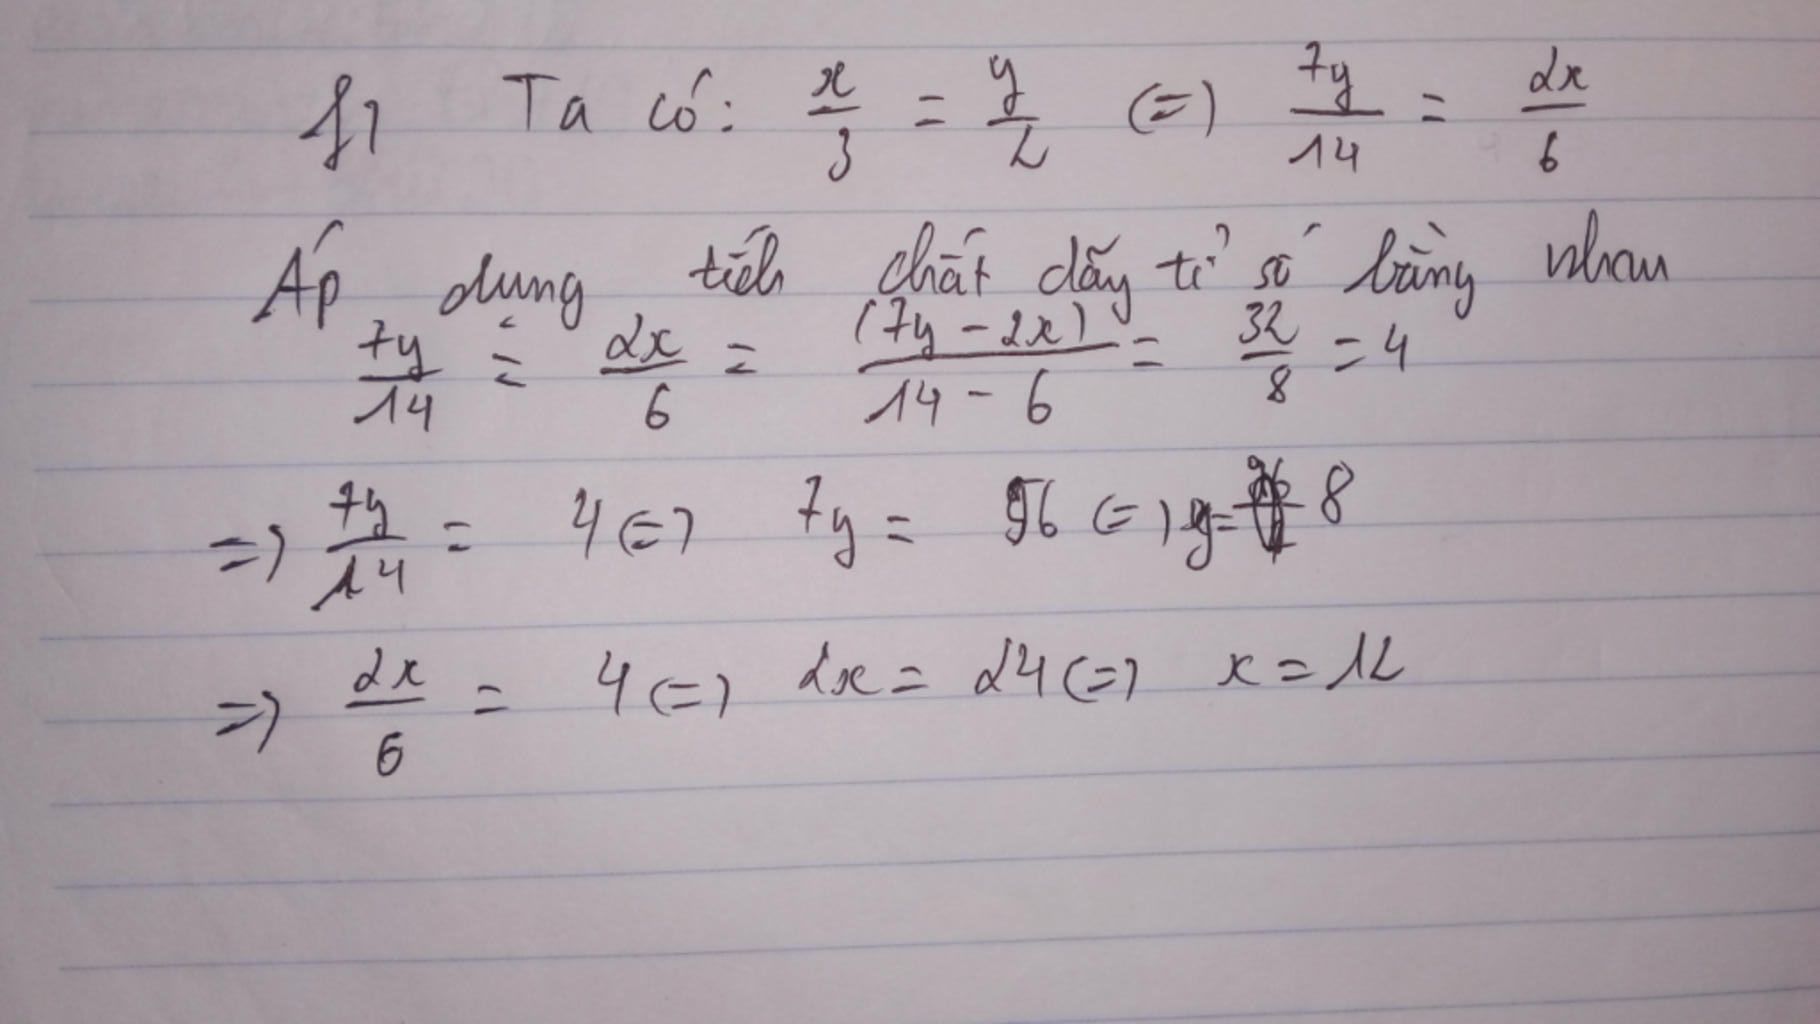 f) Ta có: x/3 = y/2 (=) 7y/14 = 2x/6
Áp dụng tích chất dãy tỉ số bằng nhau
7y/14 = 2x/6 = (7y - 2x)/14 - 6 = 32/8 = 4
=> 7y/14 = 4 (=) 7y = 56 (=) y = 8
=> 2x/6 = 4 (=) 2x = 24 (=) x = 12